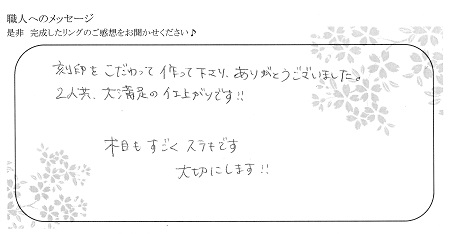 職人へのメッセージ
是非 完成したリングのご感想をお聞かせください♪
刻印をこだわって作って下さり、ありがとうございました。
2人共、大満足の仕上がりです!!
木目もすごくステキです
大切にします!!